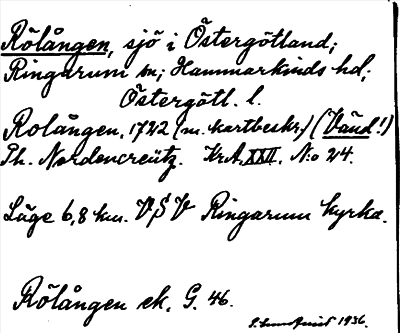 Rölången, sjö i Östergötland;
Ringarum sn; Hammarkinds hd;
Östergötl. l.
Rolången, 1722 (m. kartbeskr.) (Vänd!)
Th. Nordencreütz. Kr.A. XXII. N:o 24.
Läge 6,8 km. VSV Ringarum kyrka.
Rölången ek. G. 46.
1936.